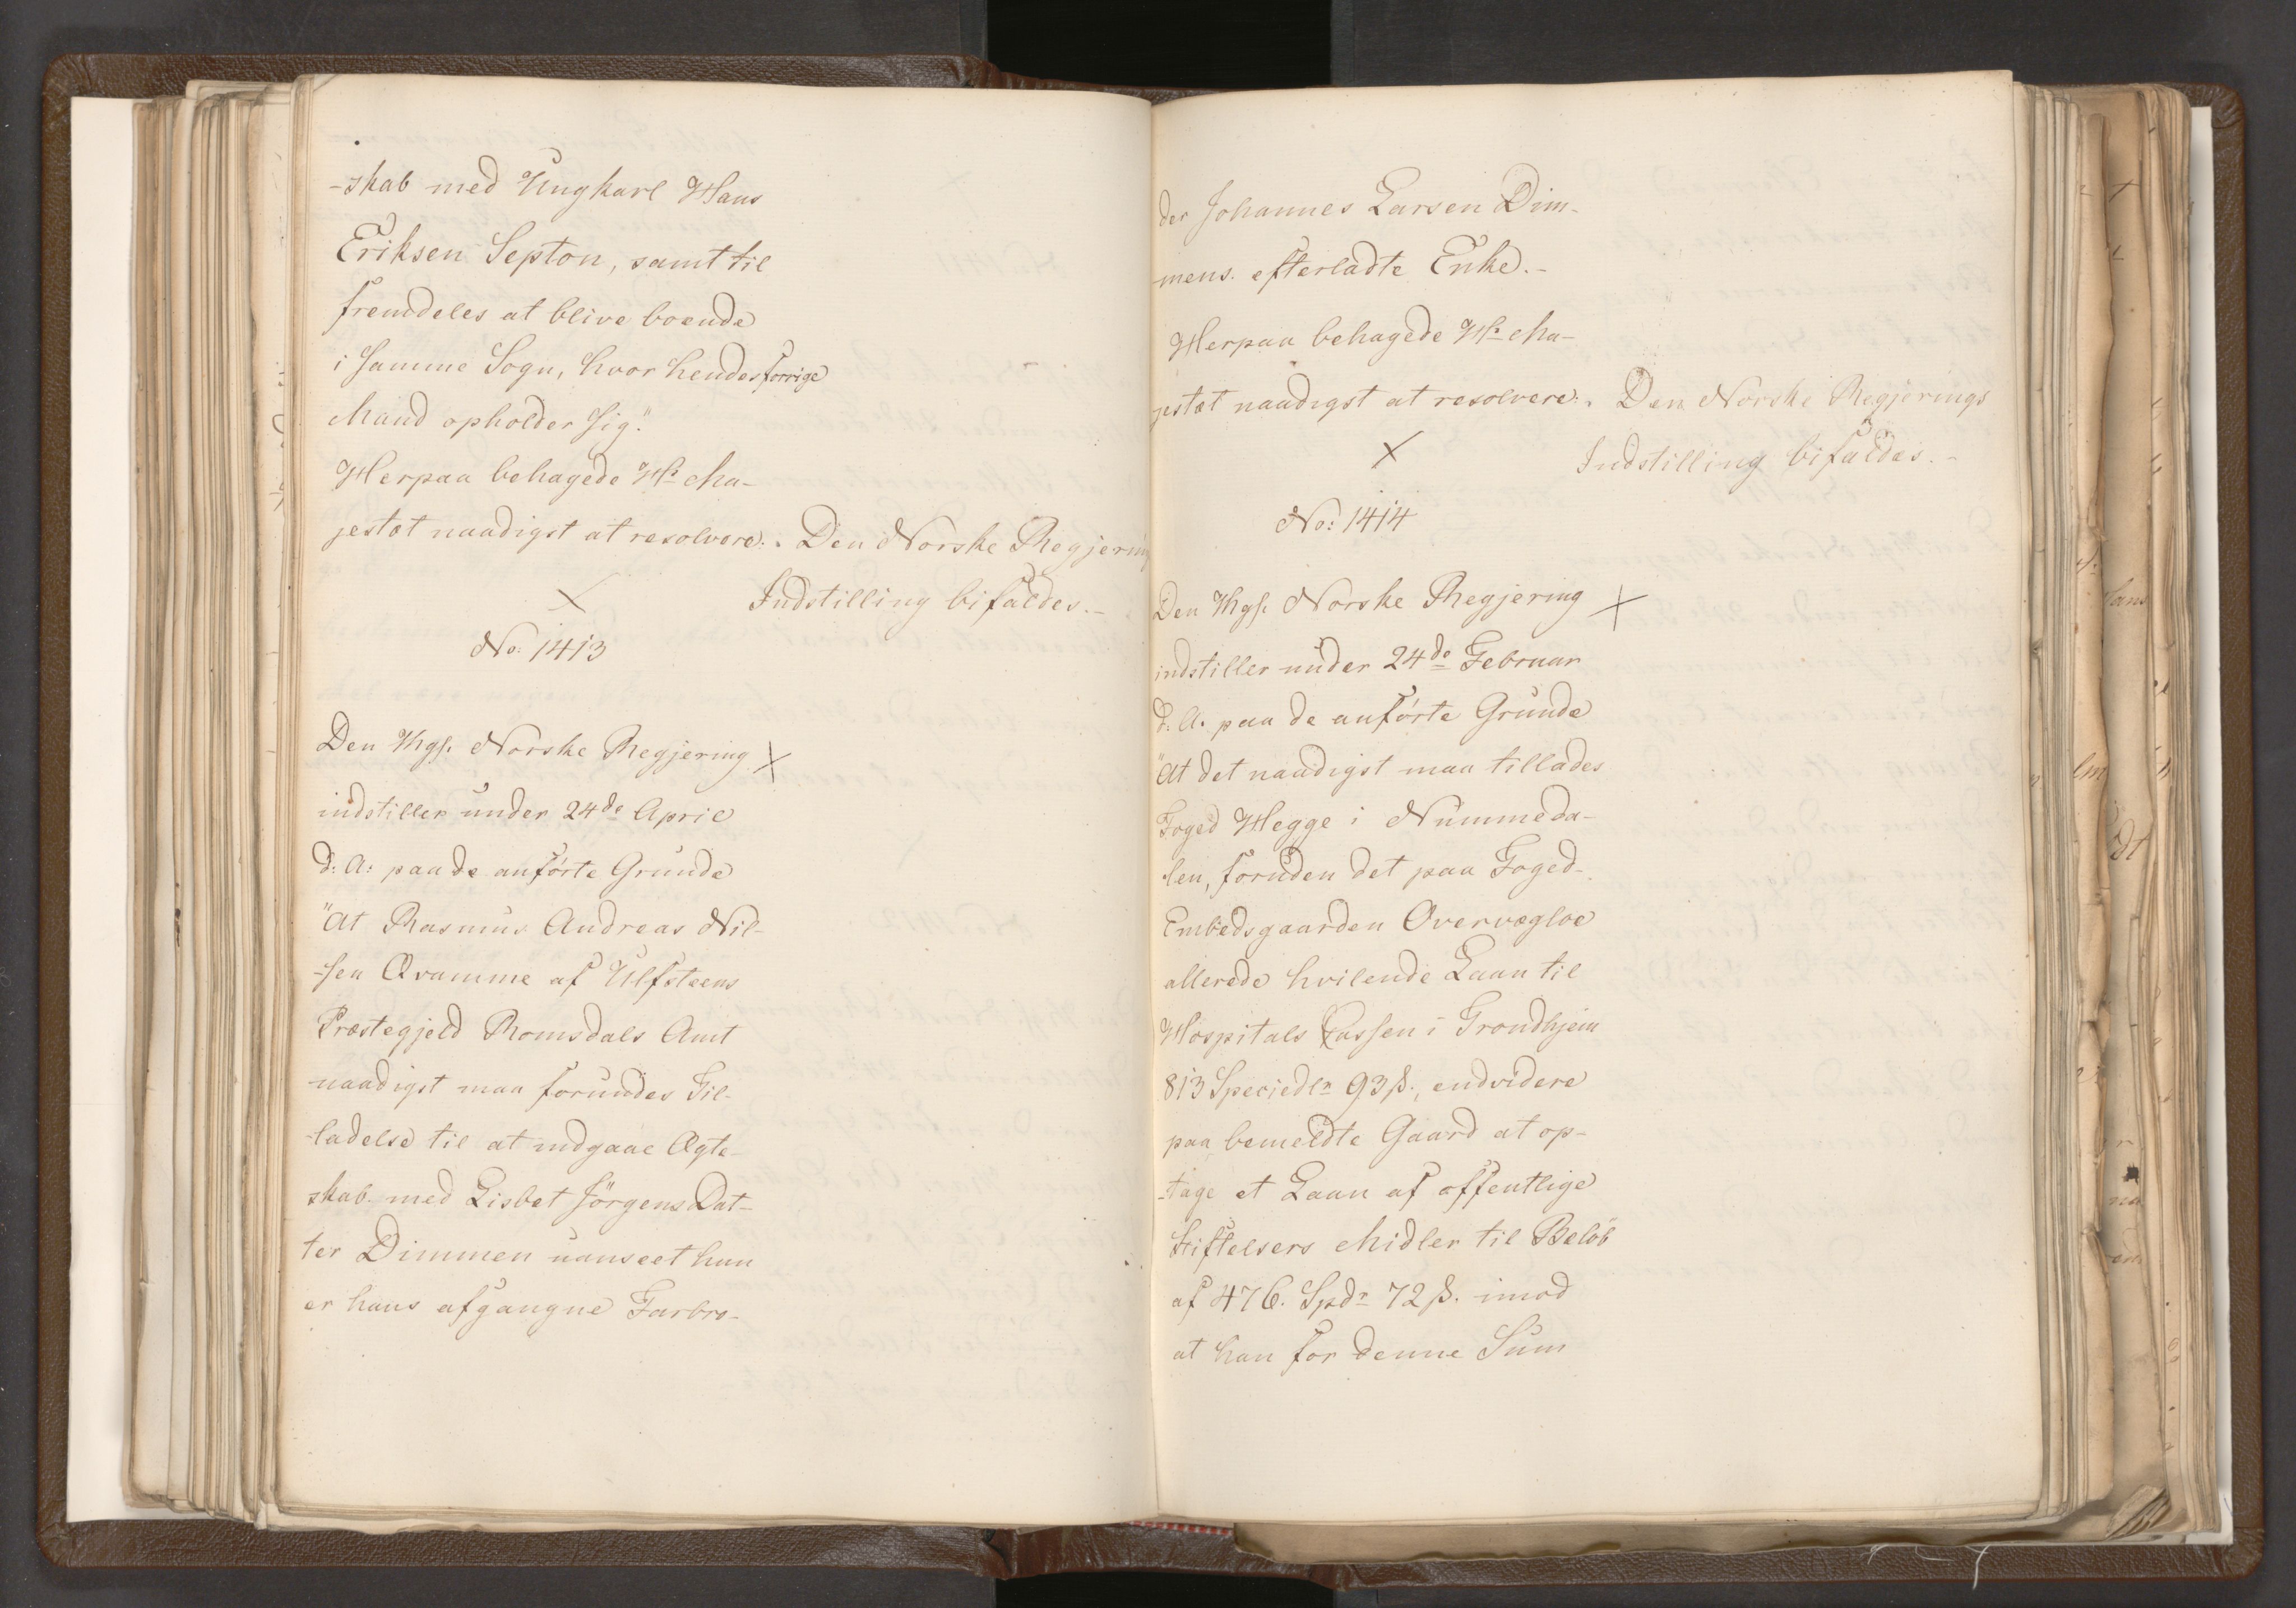 -skab med Ungkarl Hans
Eriksen Septon, samt til
fremdeles at blive boende
i samme Sogn, hvor hendes forrige
Mand opholder sig."
Herpaa behagede Hs Ma-
jestæt naadigst at resolvere: . Den Norske Regjering
Indstilling bifaldes. -
No: 1413
Den Kgs. Norske Regjering
indstiller under 24de April
d: A: paa de anförte Grunde
"At Rasmus Andreas Nil-
-sen Qvamme af Ulfsteens
Præstegjeld Romsdals Amt
naadigst maa forundes Til-
-ladelse til at indgaae Ægte-
skab med Lisbet Jörgens Dat-
ter Dimmen uanseet hun
er hans afgangne Farbro-
der Johannes Larsen Dim-
-mens. efterladte Enke. -
Herpaa behagede Hs Ma-
jestæt naadigst at resolvere: . Den Norske Regjerings
Indstilling bifaldes. -
No: 1414
Den Kgs. Norske Regjering
indstiller under 24de Februar
d: A. paa de anförte Grunde
"At det naadigst maa tillades
Foged Hegge i Nummeda-
len, foruden det paa Foged-
Embedsgaarden Overvægloe
allerede hvilende Laan til
Hospitals Cassen i Trondhjem
813 Speciedlr 93 ß., endvidere
paa bemeldte Gaard at op-
-tage et Laan af offentlige
Stiftelsers Midler til Belöb
af 476. Spdr 72 ß. imod
at han for denne Sum